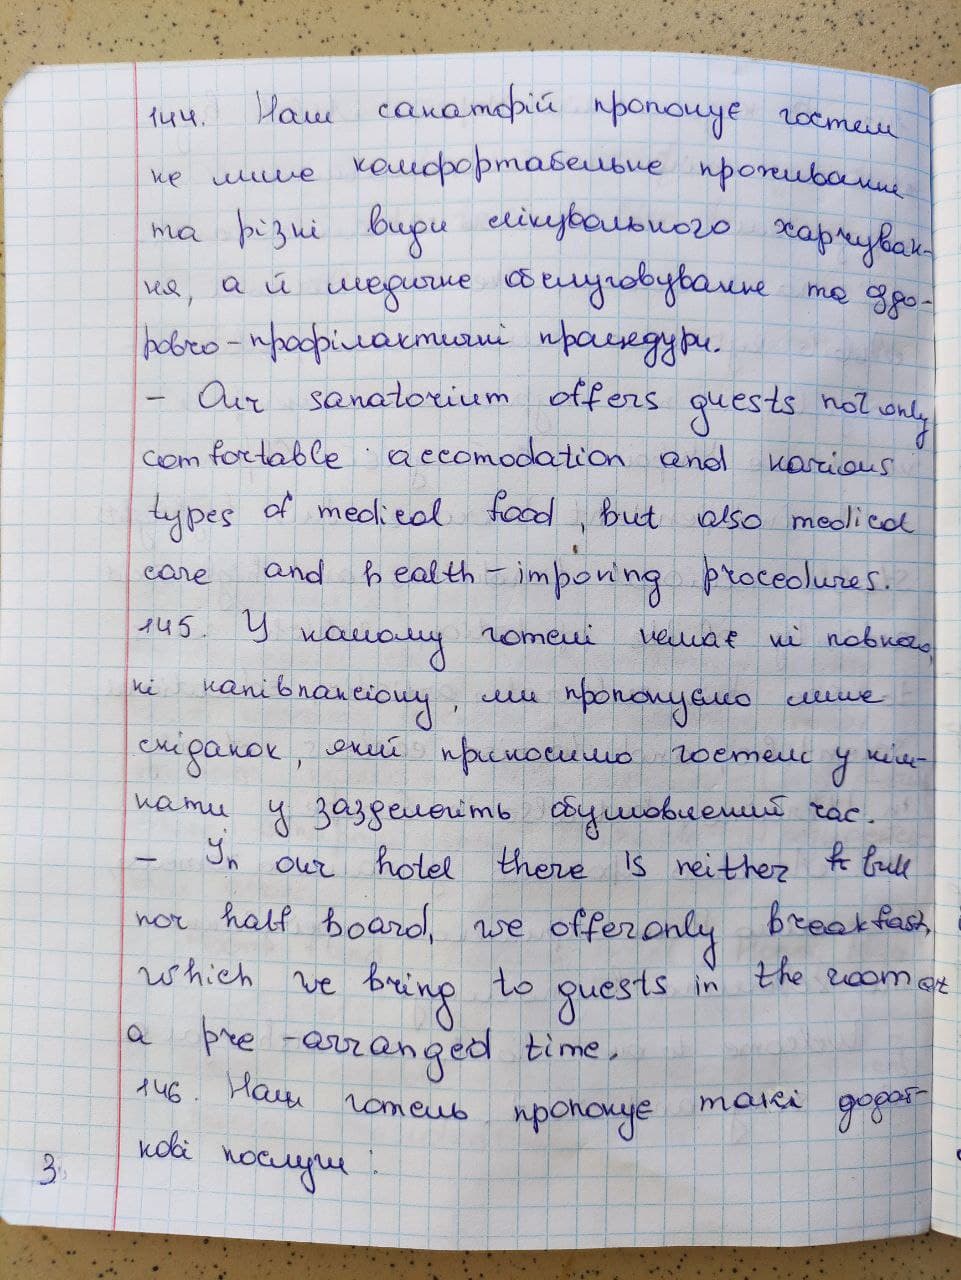 144. Наш санаторій пропонує гостям
не лише комфортабельне проживання
та різні види лікувального харчуван-
ня, а й медичне обслуговування та оздо-
ровчо-профілактичні процедури.
- Our sanatorium offers guests not only
comfortable accomodation and various
types of medical food, but also medical
care and health-imporing procedures.
145. У нашому готелі немає ні повного,
ні напівпансіону, ми пропонуємо лише
сніданок, який приносимо гостям у кім-
нати у заздалегіть обумовлений час.
- In our hotel there is neither full
nor half board, we offer only breakfast,
which we bring to guests in the room at
a pre-arranged time.
146. Наш готель пропонує такі додат-
кові послуги:
3